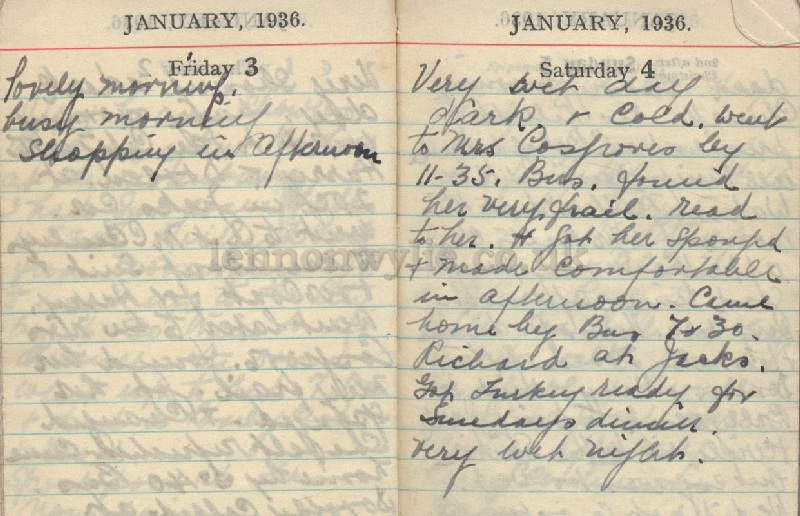 JANUARY, 1936.
Friday 3
lovely morning.
busy morning
Shopping in afternoon
JANUARY, 1936.
Saturday 4
Very wet day
dark. & Cold. went
to Mrs Cosgroves by
11-35. Bus. found
her very frail. read
to her. & Got her sponged
+ made Comfortable
in afternoon. Came
home by Bus 7 30.
Richard at Jacks.
Got Turkey ready for
Sundays dinner.
Very wet night.
lennonwylie.co.uk